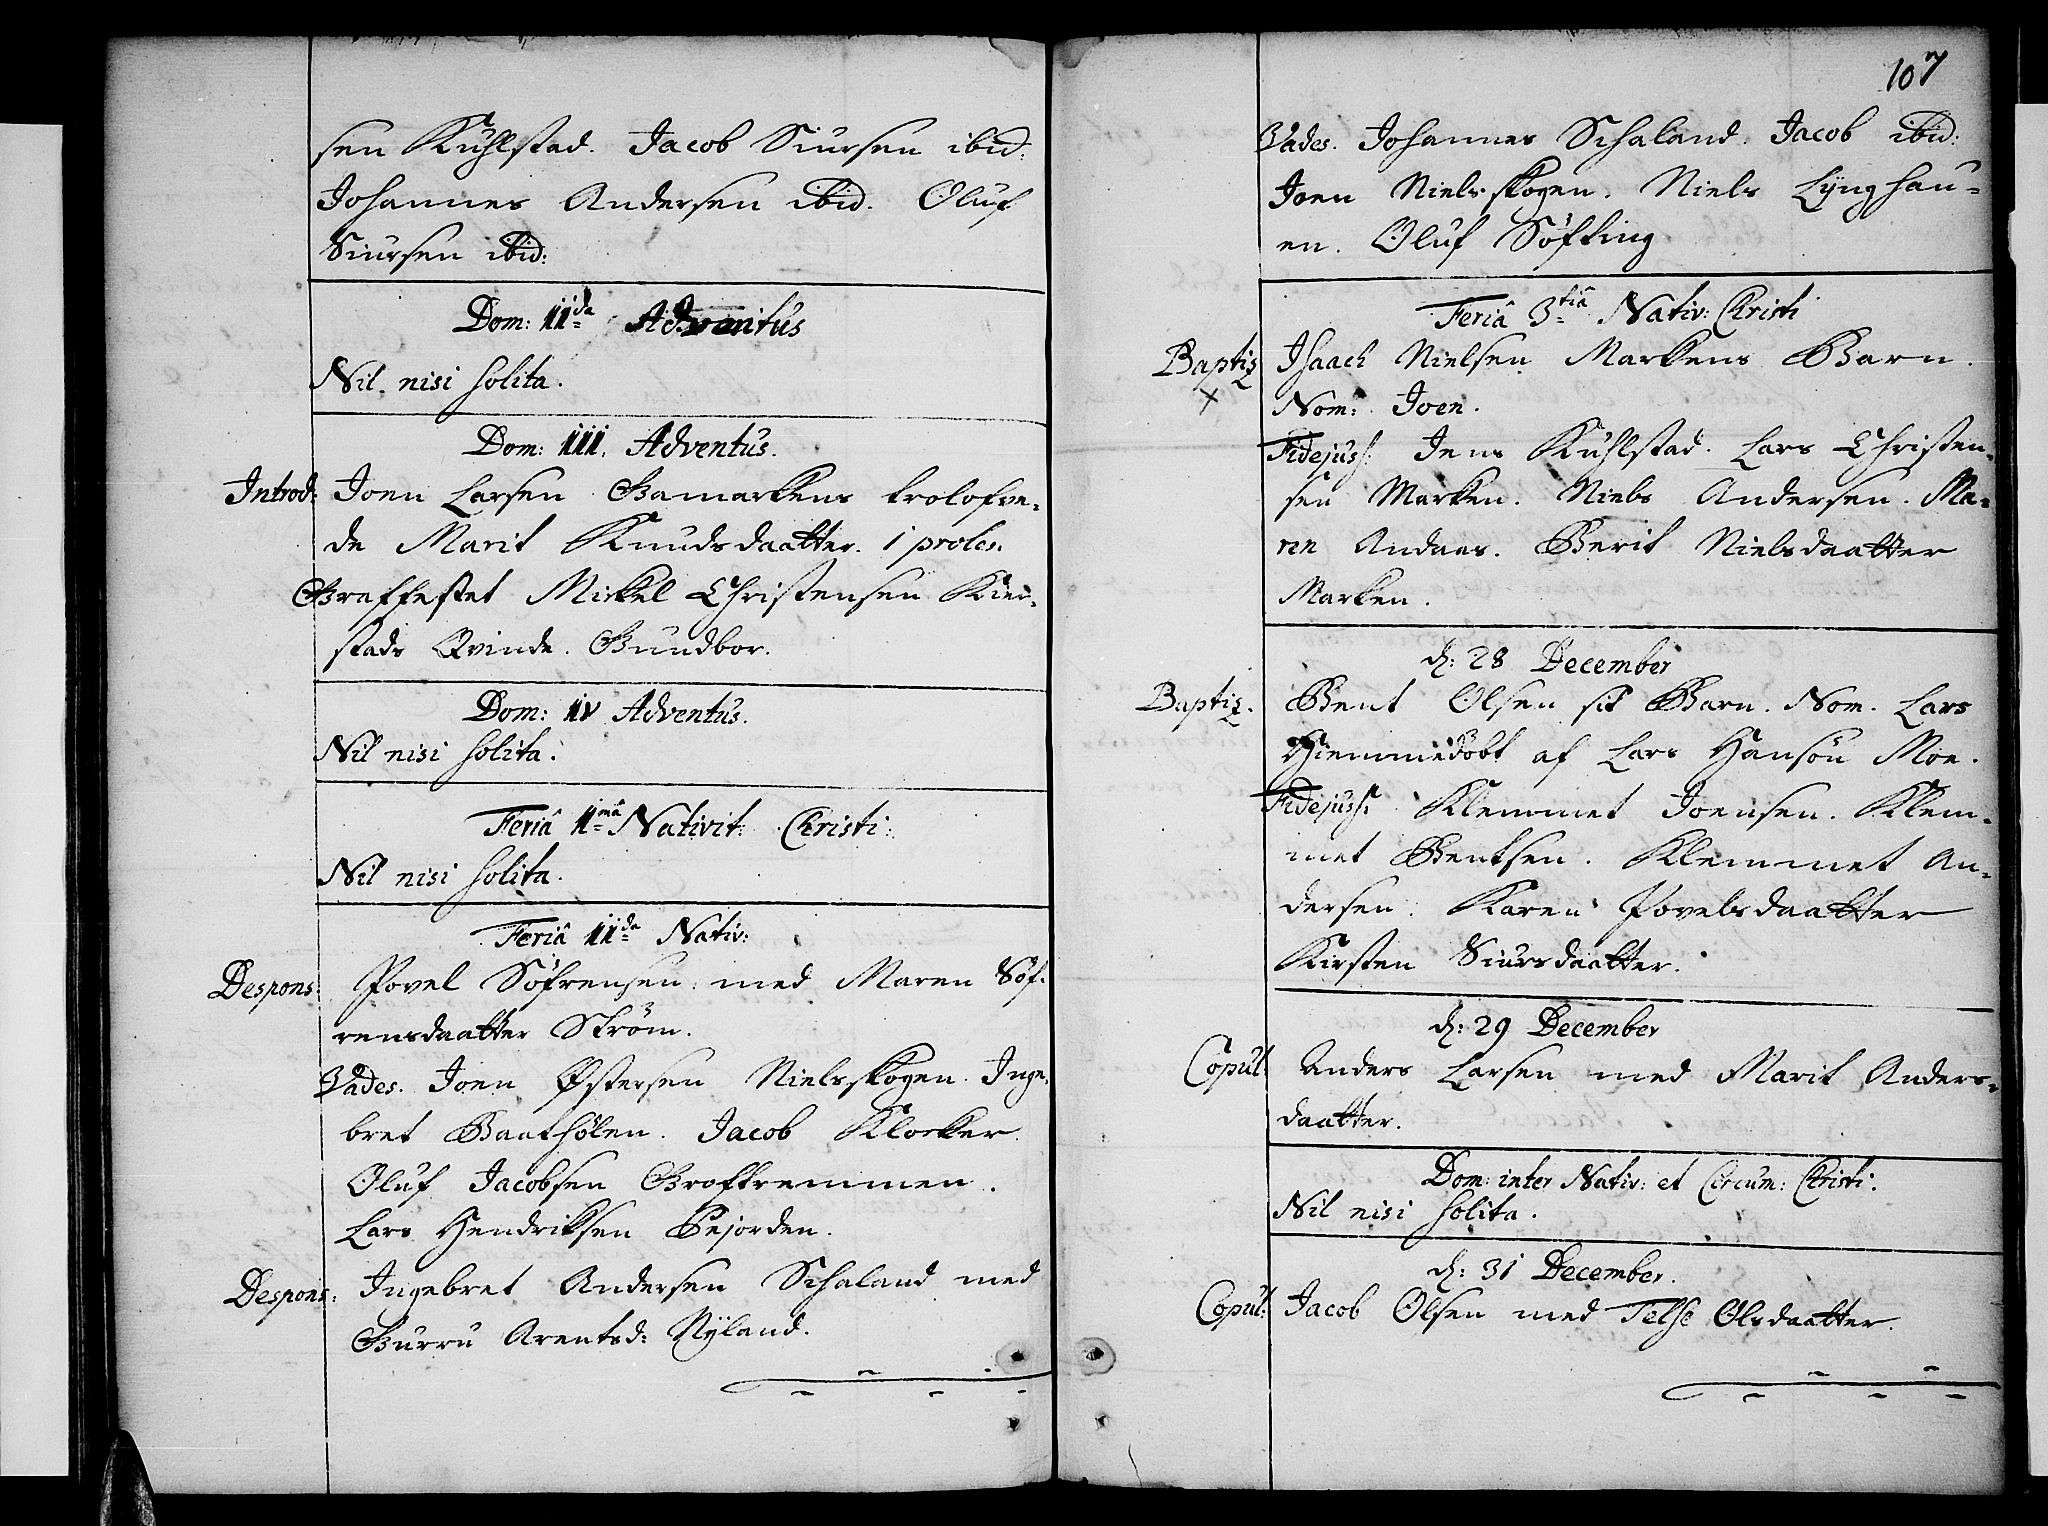 sen Kuhlstad. Jacob Siursen ibid:
Johannes Andersen ibid. Oluf
Siursen ibid:
Dom: II da Adventus
Nil nisi solita.
Dom: III. Adventus.
Introd: Joen Larsen Gamarkens trolofve-
de Marit Knudsdaatter. 1 proles.
Graffæstet Mickel Christensen Kier-
stads Qvinde. Gundbor.
Dom: IV Adventus.
Nil nisi solita.
Feriâ I mâ Nativit: Christi:
Nil nisi solita.
Feriâ II da Nativ:
Despons: Povel Söfrensen med Maren Söf-
rensdaatter Ström.
Vades. Joen Østersen Nielsskogen. Inge-
bret Baathölen. Jacob Klocker.
Oluf Jacobsen
Lars Hendriksen Sejorden.
Despons: Ingebret Andersen Schaland med
Gurru Arentsd: Nÿland.
107
Vades. Johannes Schaland. Jacob ibid:
Joen Nielsskogen. Niels Lÿnghau-
en. Oluf Söfting
Feriâ 3 tiâ Nativ: Christi
Baptiz Isaach Nielsen Markens Barn.
× Nom: Joen.
Fidejuss: Jens Kuhlstad. Lars Christen-
sen Marken. Niels Andersen. Ma-
ren Andaas. Berit Nielsdaatter
Marken.
d: 28 December
Baptiz. Bent Olsen sit Barn. Nom. Lars
Hiemmedöbt af Lars Hansön Moe.
Fidejuss: Klemmet Joensen. Klem-
met Bentsen. Klemmet An-
dersen. Karen Povelsdaatter
Kirsten Siursdaatter.
d: 29 December
Copul: Anders Larsen med Marit Anders-
daatter.
Dom: inter Nativ: et Circum: Christi.
Nil nisi solita.
d: 31 December.
Copul: Jacob Olsen med Telse Olsdaatter.